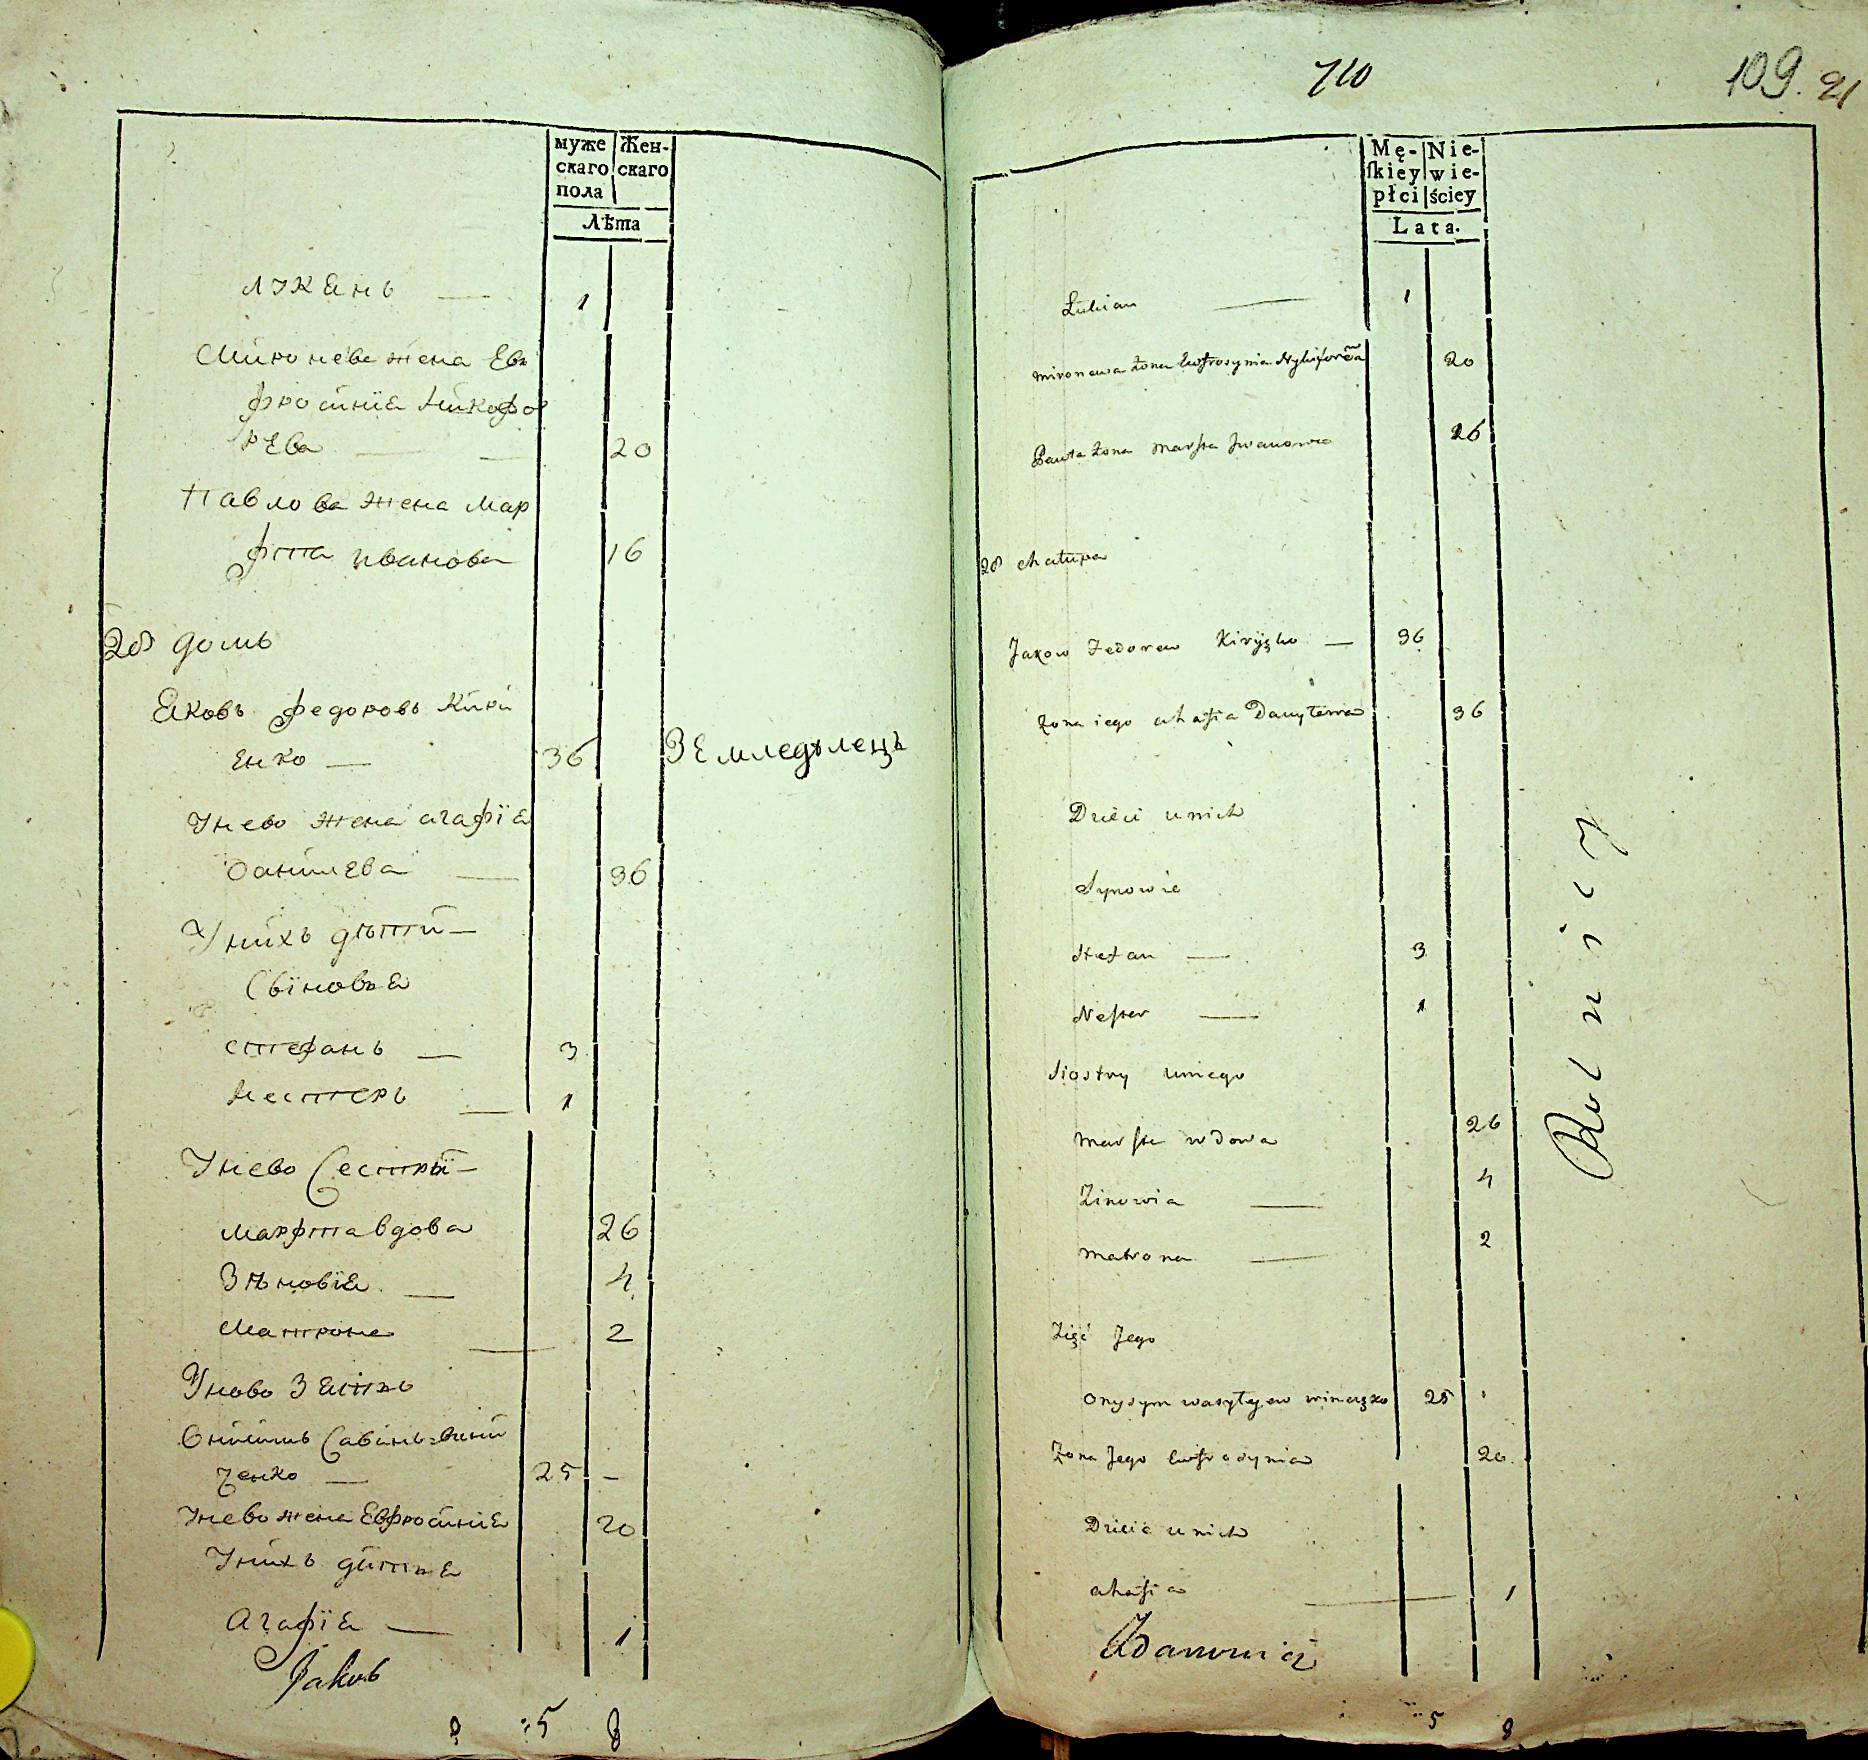 муже Жен-
скаго скаго
пола
Лѣта
Лукянъ — 1
Миронева жена Ев
фросинїя Никофо
рева — — 20
Павлова жена Мар
фта иванова 16
28 домъ
Яковъ федоровъ Кири
енко — 36 Землед​ѣлецъ
Унево жена агафїя
данилева — 36
Унихъ дѣти —
Сыновья
стефанъ — 3
Нестеръ — 1
Унево Сестры —
марфта вдова 26
Зѣновїя — 4
Матрона — 2
Уново Зять
Онисимъ Савинъ вини
ченко — 25 —
Унево жена Евфросинїя 20
Унихъ дитя
Агафїя — 1
Jakub
5 8
710 109. 21
Mę- Nie-
ſkiey wie-
płci ściey
Lata.
Łukian — 1
mironowa żona Eufrosynia Nykiforowa 20
Pawła żona Marfta Jwanowa 26
28 chałupa
Jakow Fedorow Kiryęko — 36
żona iego ahafia Danyłewa 36
Dzieci unich
Synowie
Stefan — 3
Nester — 1
Siostry uniego
Marfta wdowa 26
Zinowia — 4
Matrona — 2
Zięć Jego
Onysym wasylyew winięzko 25
Żona Jego Eufrosynia 20
Dziecie unich
ahafia — 1
Rolnicy
Adamowicz
5 8